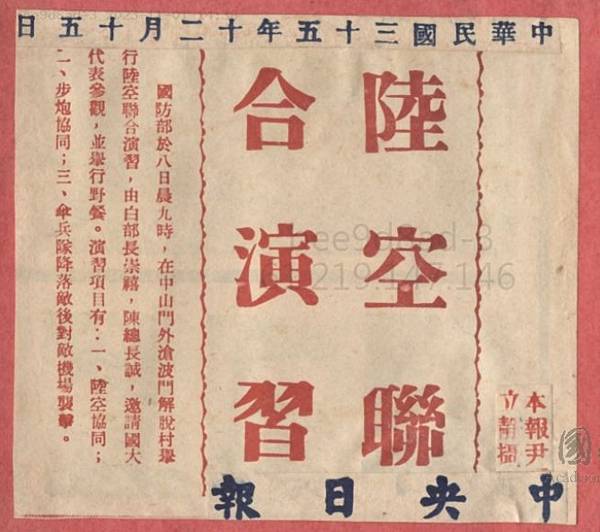 中華民國三十五年十二月十五日
陸空聯
合演習
國防部於八日晨九時，在中山門外滄波門解脫村舉
行陸空聯合演習，由白部長崇禧，陳總長誠，邀請國大
代表參觀，並舉行野餐。演習項目有：一、陸空協同；
二、步炮協同；三、傘兵隊降落敵後對敵機場襲擊。
本報尹
立靜攝
中央日報